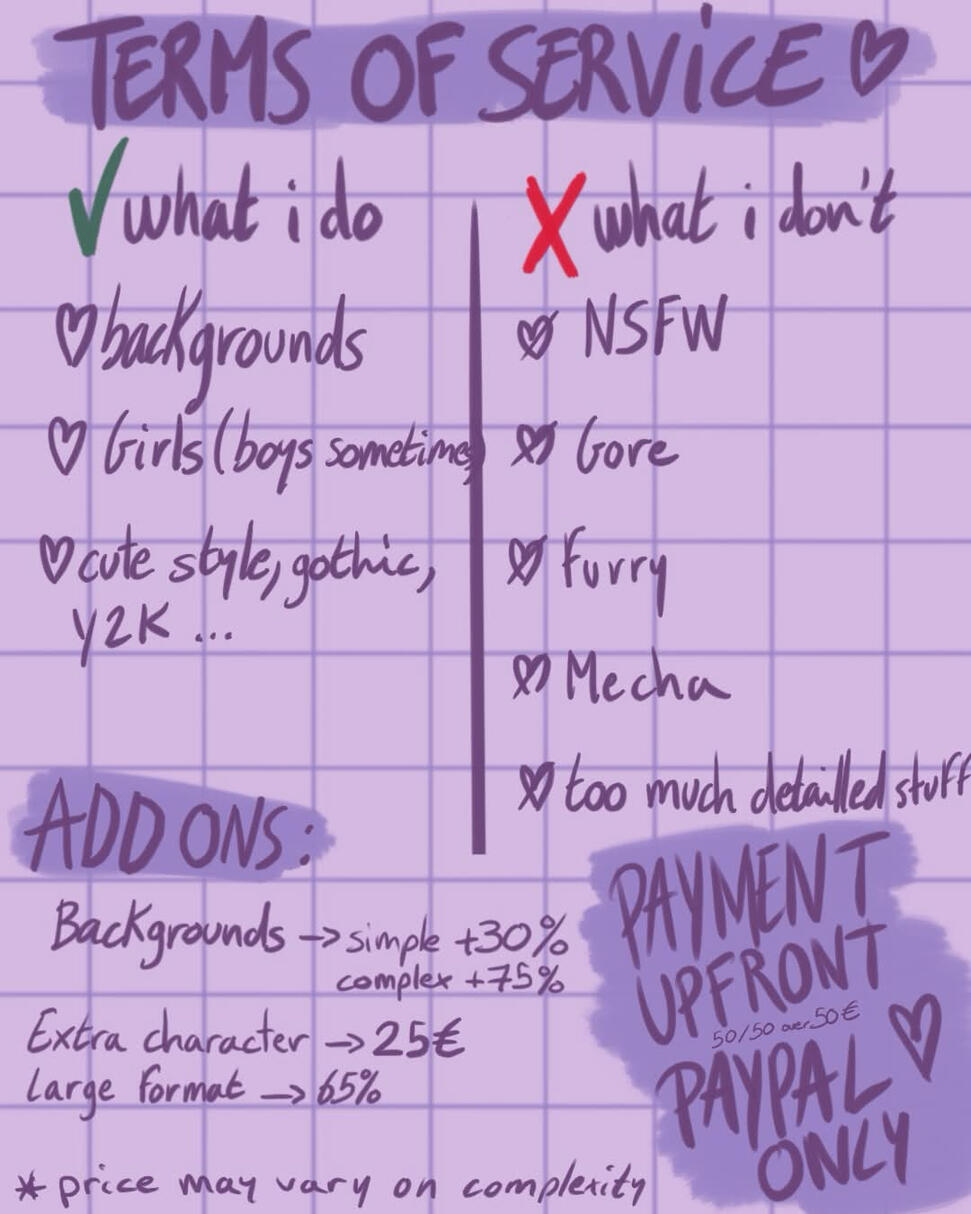 TERMS OF SERVICE ♡
✓ what i do
♡ backgrounds
♡ Girls (boys sometimes)
♡ cute style, gothic,
Y2K ...
X what i don't
♡ NSFW
♡ Gore
♡ Furry
♡ Mecha
♡ too much detailled stuff
ADD ONS:
Backgrounds → simple +30%
complex +75%
Extra character → 25€
Large format → 65%
PAYMENT
UPFRONT
50/50 over 50€
PAYPAL ♡
ONLY
* price may vary on complexity